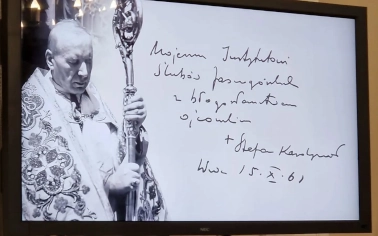 Mojemu Instytutowi
Ślubów Jasnogórskich
z błogosławieństwem
ojcowskim
+ Stefan Kardynał
15. X. 61